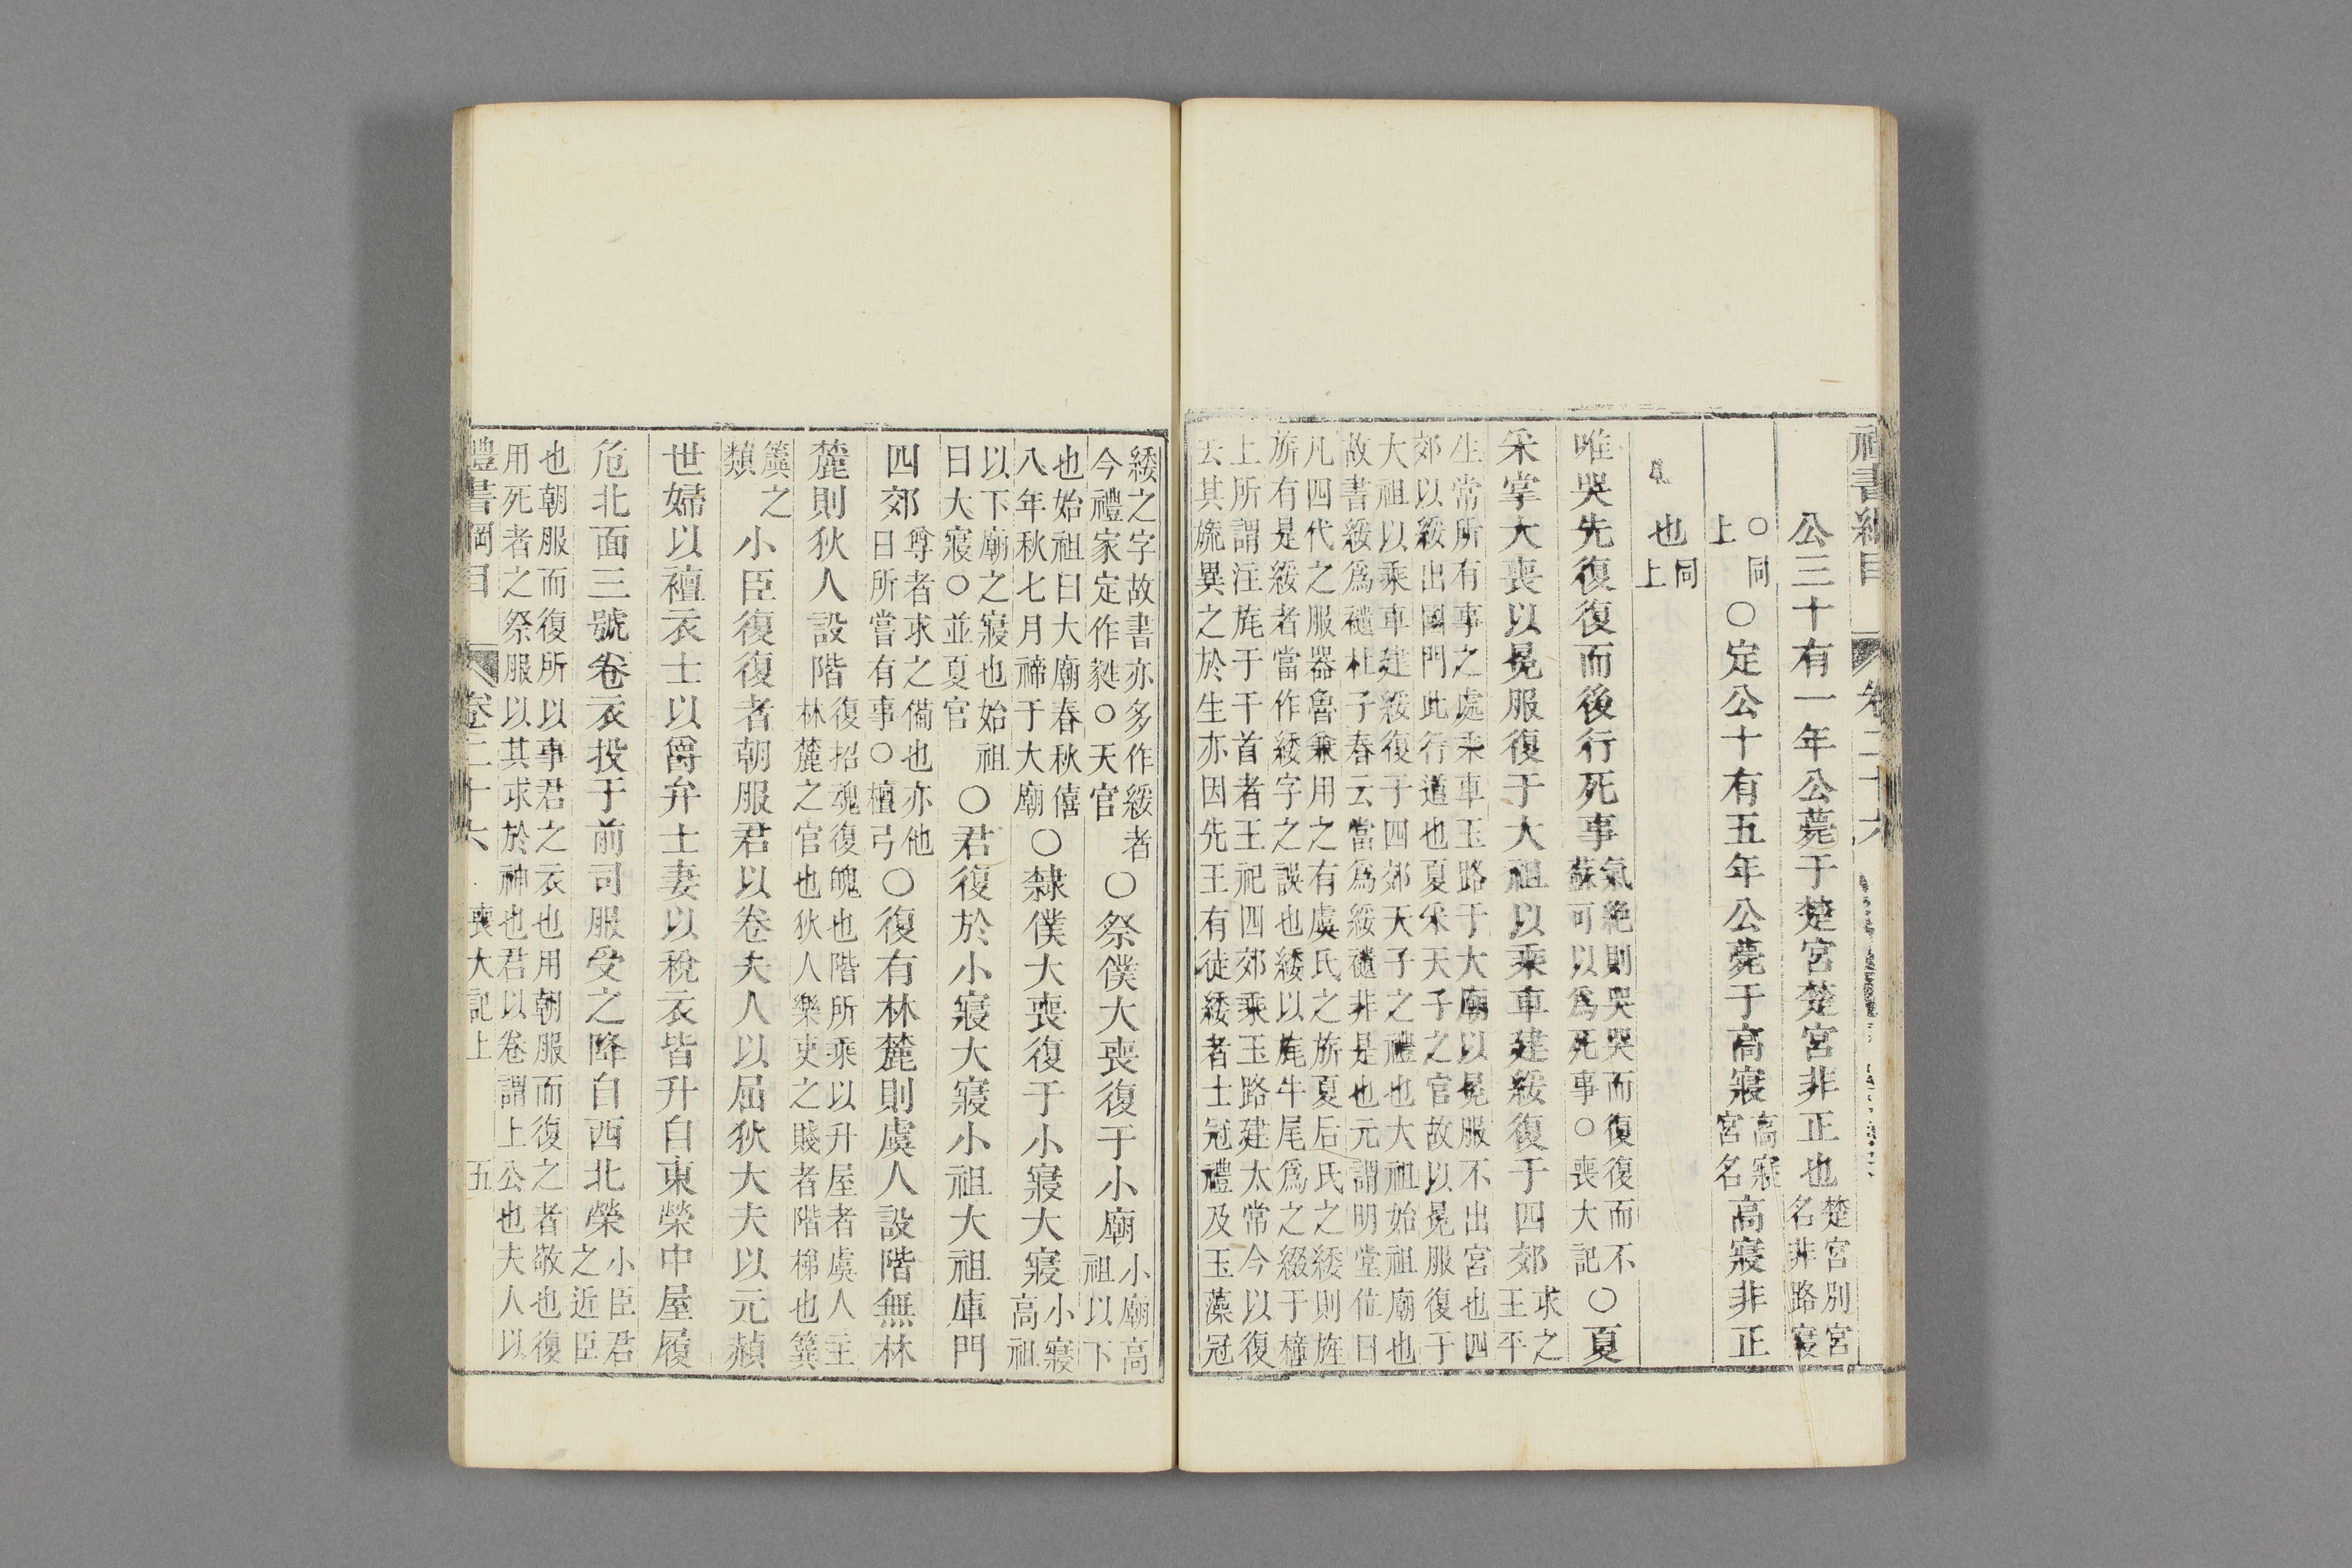 禮書綱目 卷二十六
公三十有一年公薨于楚宮楚宮非正也楚宮別宮名非路寢
○同上○定公十有五年公薨于高寢高寢宮名高寢非正
也同上
唯哭先復復而後行死事氣絶則哭哭而復復而不蘇可以爲死事○喪大記○夏
采掌大喪以冕服復于大祖以乘車建綏復于四郊求之王平
生常所有事之處乘車玉路于大廟以冕服不出宮也四
郊以綏出國門此行道也夏采天子之官故以冕服復于
大祖以乘車建綏復于四郊天子之禮也大祖始祖廟也
故書綏爲䄠杜子春云當爲綏䄠非是也元謂明堂位曰
凡四代之服器魯兼用之有虞氏之旂夏后氏之綏則旌
旂有是綏者當作緌字之誤也緌以旄牛尾爲之綴于橦
上所謂注旄于干首者王祀四郊乘玉路建太常今以復
去其旒異之於生亦因先王有徒緌者士冠禮及玉藻冠
緌之字故書亦多作綏者
今禮家定作蕤○天官○祭僕大喪復于小廟小廟高祖以下
也始祖曰大廟春秋僖
八年秋七月禘于大廟○隸僕大喪復于小寢大寢小寢高祖
以下廟之寢也始祖
曰大寢○並夏官○君復於小寢大寢小祖大祖庫門
四郊尊者求之備也亦他日所嘗有事○檀弓○復有林麓則虞人設階無林
麓則狄人設階復招魂復魄也階所乘以升屋者虞人主林麓之官也狄人樂吏之賤者階梯也簨
簴之類小臣復復者朝服君以卷夫人以屈狄大夫以元赬
世婦以襢衣士以爵弁士妻以稅衣皆升自東榮中屋履
危北面三號卷衣投于前司服受之降自西北榮小臣君之近臣
也朝服而復所以事君之衣也用朝服而復之者敬也復
用死者之祭服以其求於神也君以卷謂上公也夫人以
禮書綱目 卷二十六 喪大記上 五